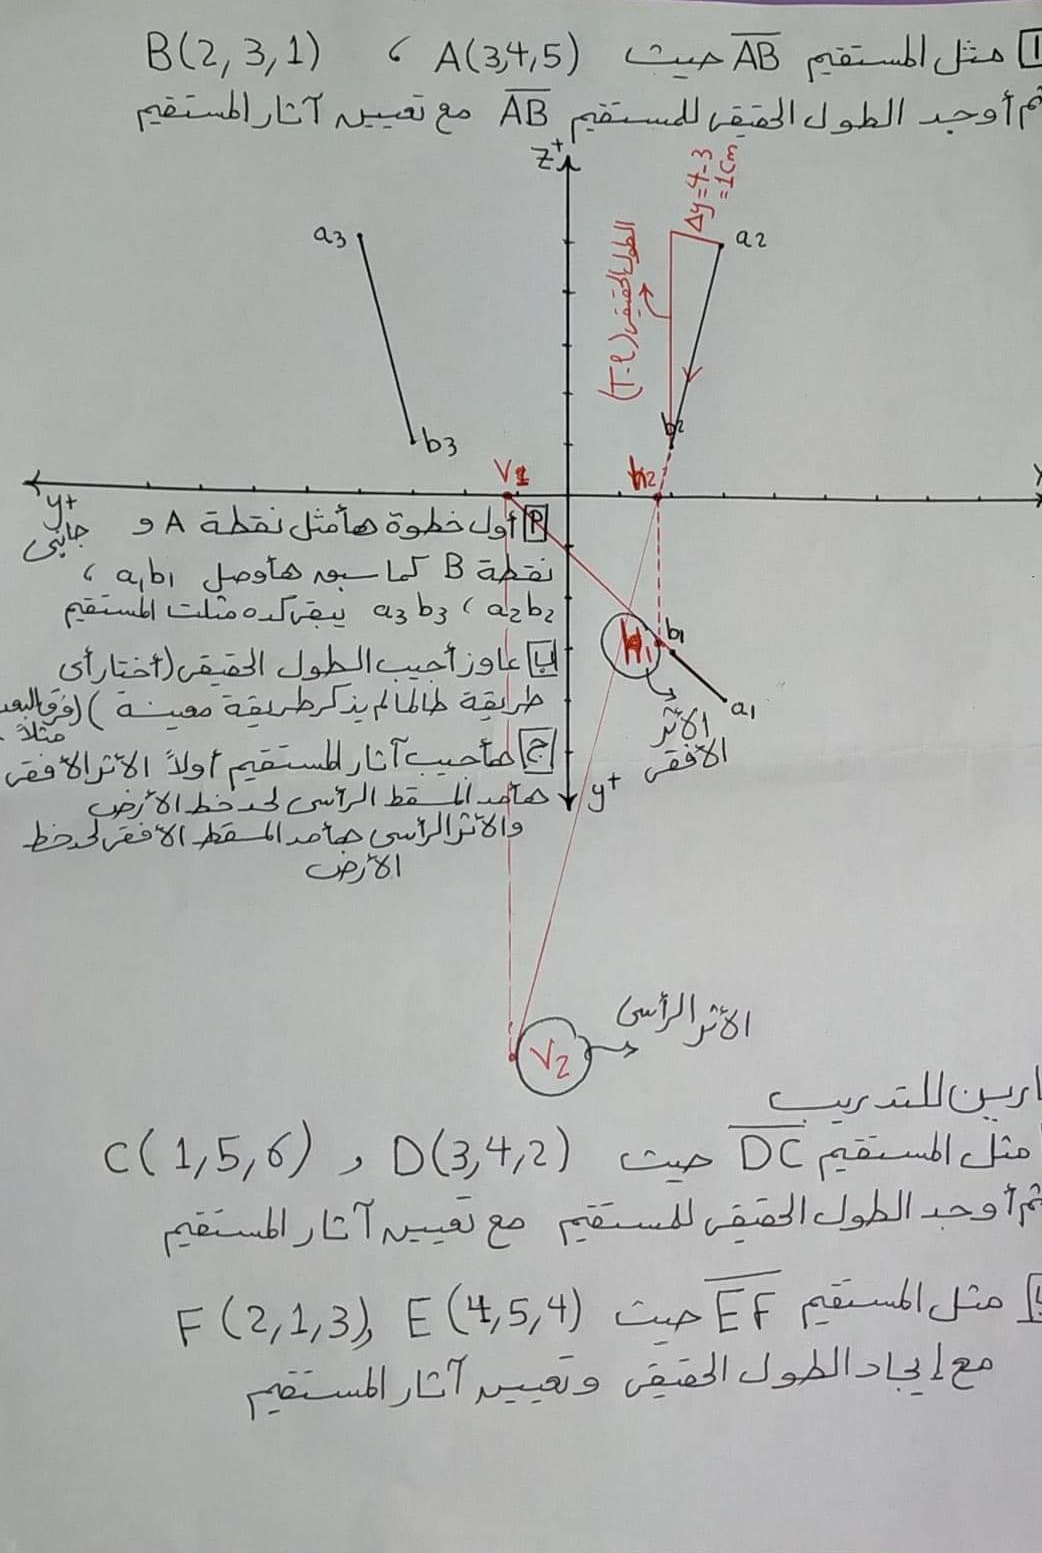 1 مثل المستقيم AB حيث A(3,4,5) ، B(2,3,1)
ثم أوجد الطول الحقيقى للمستقيم AB مع تعيين آثار المستقيم
z+
Δy=4-3
=1cm
الطول الحقيقى (T.L)
a3
a2
b3
b2
V1
h2
y+
جانبى
أ أول خطوة هأمثل نقطة A و
نقطة B كما سبق هأوصل a1b1 ،
a2b2 ، a3b3 يبقى كده مثلت المستقيم
ب عاوز أجيب الطول الحقيقى (أختار أى
طريقة طالما لم يذكر طريقة معينة) (فرق البعد
مثلاً.
ج هأجيب آثار المستقيم أولاً الأثر الأفقى
هأمد المسقط الرأسى لحد خط الأرض
والأثر الرأسى هأمد المسقط الأفقى لحد خط
الأرض
H1
b1
a1
الأثر
الأفقى
y+
V2
الأثر الرأسى
للتدريب
مثل المستقيم DC حيث D(3,4,2) و C(1,5,6)
ثم أوجد الطول الحقيقى للمستقيم مع تعيين آثار المستقيم
مثل المستقيم EF حيث E(4,5,4) ، F(2,1,3)
مع إيجاد الطول الحقيقى وتعيين آثار المستقيم